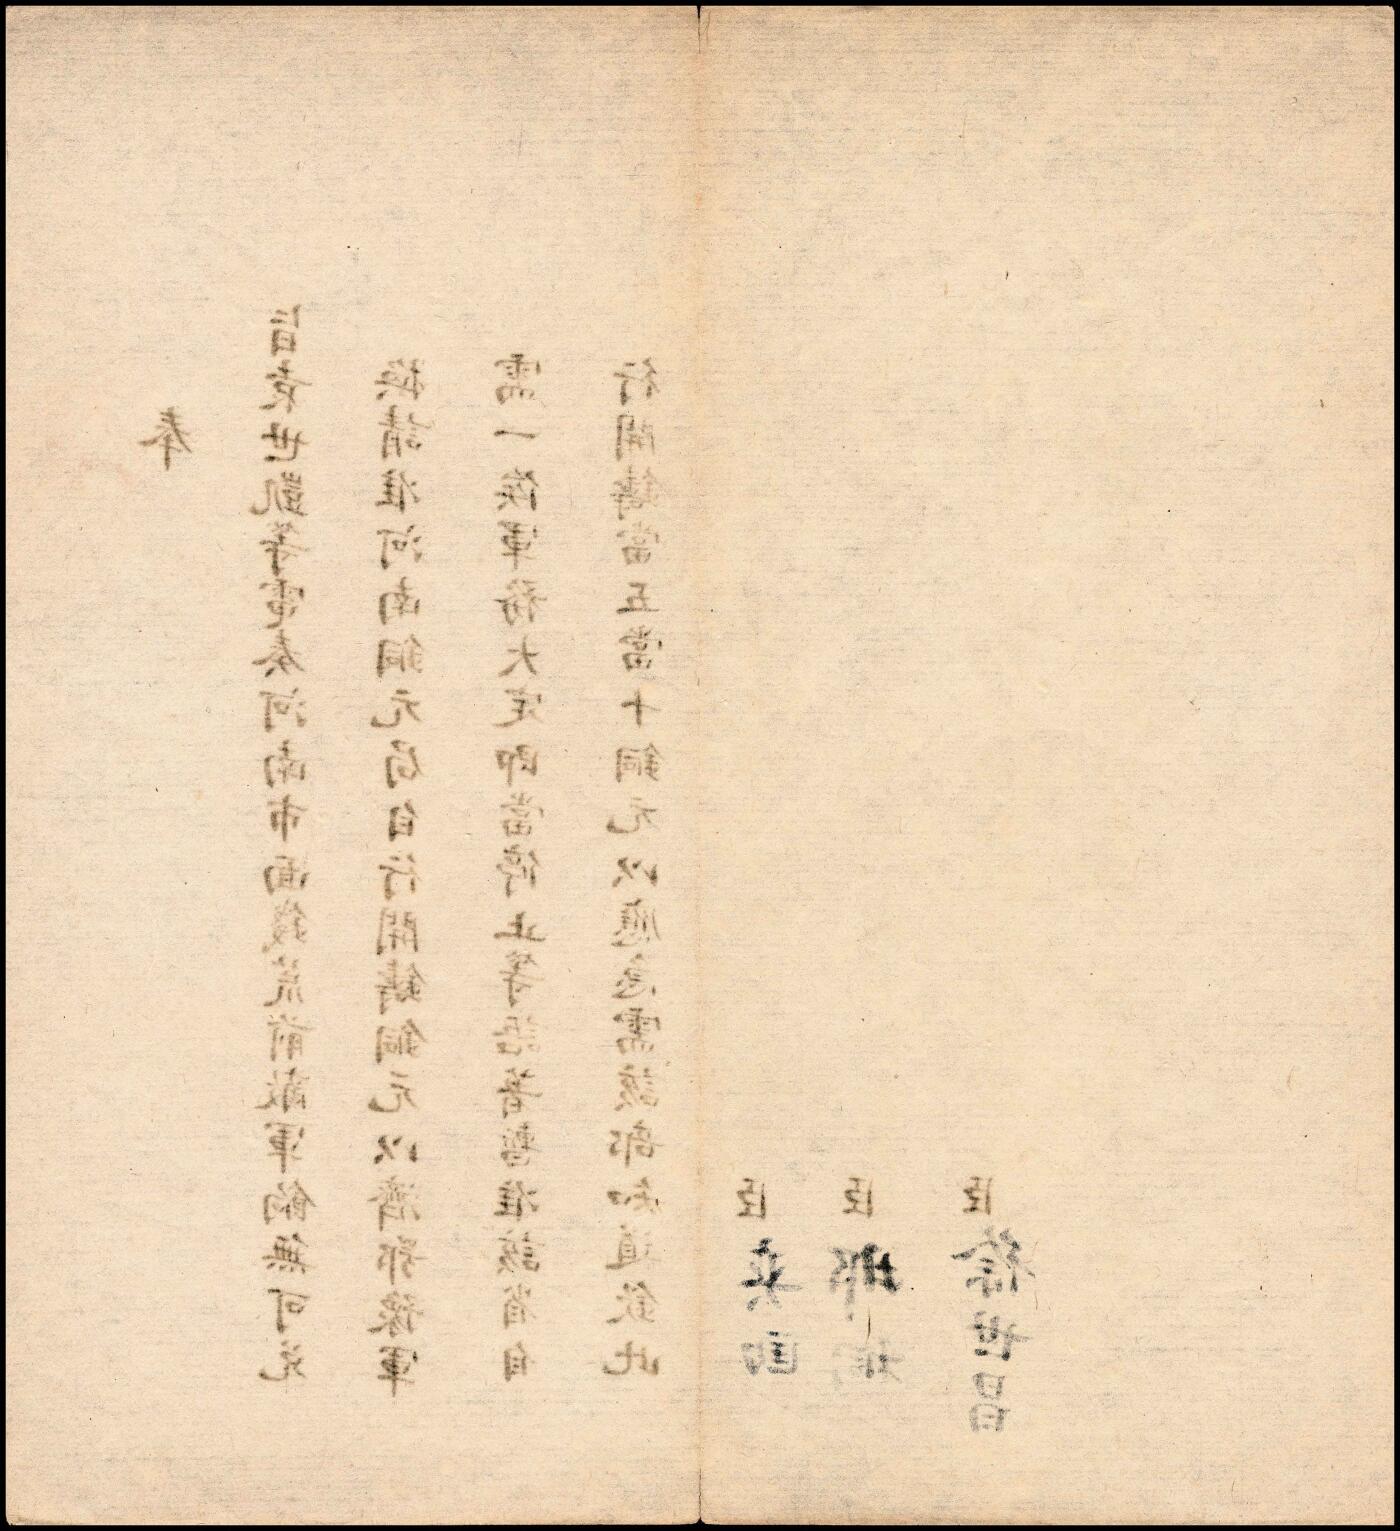 奉
旨袁世凱等電奏河南市面錢荒前敵軍餉無可兌
換請准河南銅元局自行開鑄銅元以濟鄂豫軍
需一俟軍務大定即當停止等語著暫准該省自
行開鑄當五當十銅元以應急需該部知道欽此
臣奕劻
臣那桐
臣徐世昌